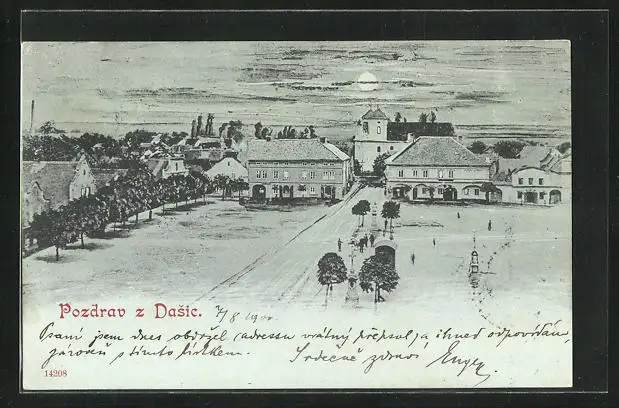 Pozdrav z Dašic. 7/8 1900
Psaní jsem dnes obdržel (adressu vrátný přepsal) a ihned odpovídám,
zároveň s tímto lístkem. Srdečně zdraví Eugen
14208